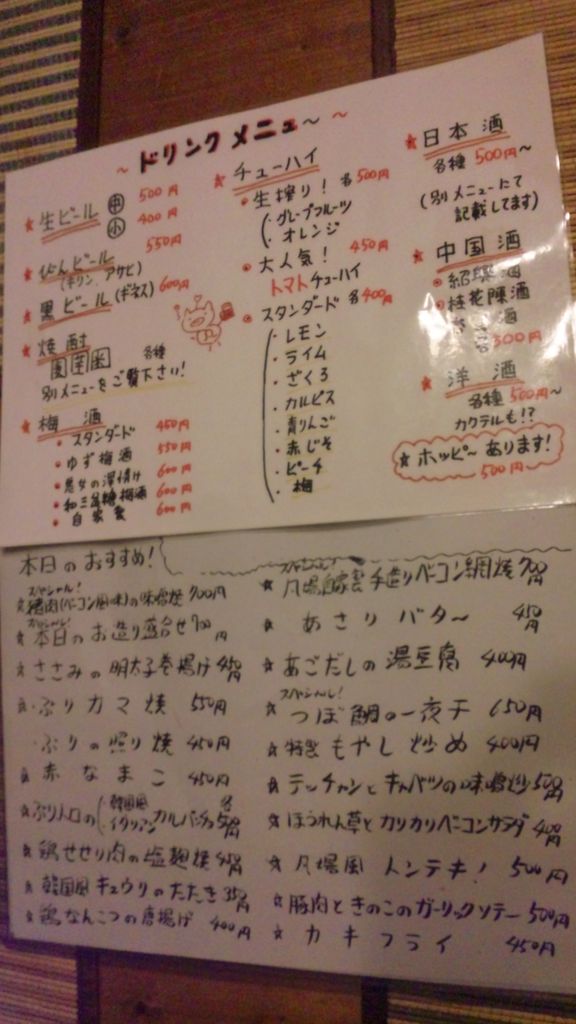 ～ドリンクメニュ～～
★生ビール 中 500円
小 400円
★びんビール 550円
(キリン、アサヒ)
★黒ビール(ギネス) 600円
★焼酎
麦 芋 米 各種
別メニューをご覧下さい!
★梅酒
・スタンダード 450円
・ゆず梅酒 550円
・悪女の深情け 600円
・和三盆糖梅酒 600円
・自家製 600円
★チューハイ
・生搾り! 各500円
グレープフルーツ
オレンジ
・大人気! 450円
トマトチューハイ
・スタンダード 各400円
・レモン
・ライム
・ざくろ
・カルピス
・青りんご
・赤じそ
・ピーチ
・梅
★日本酒
各種 500円～
(別メニューにて
記載してます)
★中国酒
・紹興酒
・桂花陳酒
酒
各300円
★洋酒
各種 500円～
カクテルも!?
★ホッピ～あります!
500円
本日のおすすめ!
スペシャル!
★猪肉(ベーコン風味)の味噌焼 700円
スペシャル!
★本日のお造り盛合せ 700円
★ささみの明太子巻揚げ 450円
★ぶりカマ焼 550円
・ぶりの照り焼 450円
★赤なまこ 450円
★ぶりトロの(韓国風 イタリアン カルパッチョ 各500円
★鶏せせり肉の塩麹焼 450円
★韓国風キュウリのたたき 350円
★鶏なんこつの唐揚げ 400円
スペシャル!
★月場自家製手造りベーコン網焼 700円
★あさりバター 450円
★あごだしの湯豆腐 400円
スペシャル!
★つぼ鯛の一夜干 650円
★特製もやし炒め 400円
★テッチャンとキャベツの味噌炒 500円
★ほうれん草とカリカリベーコンサラダ 400円
★月場風トンテキ! 500円
★豚肉ときのこのガーリックソテー 500円
★カキフライ 450円